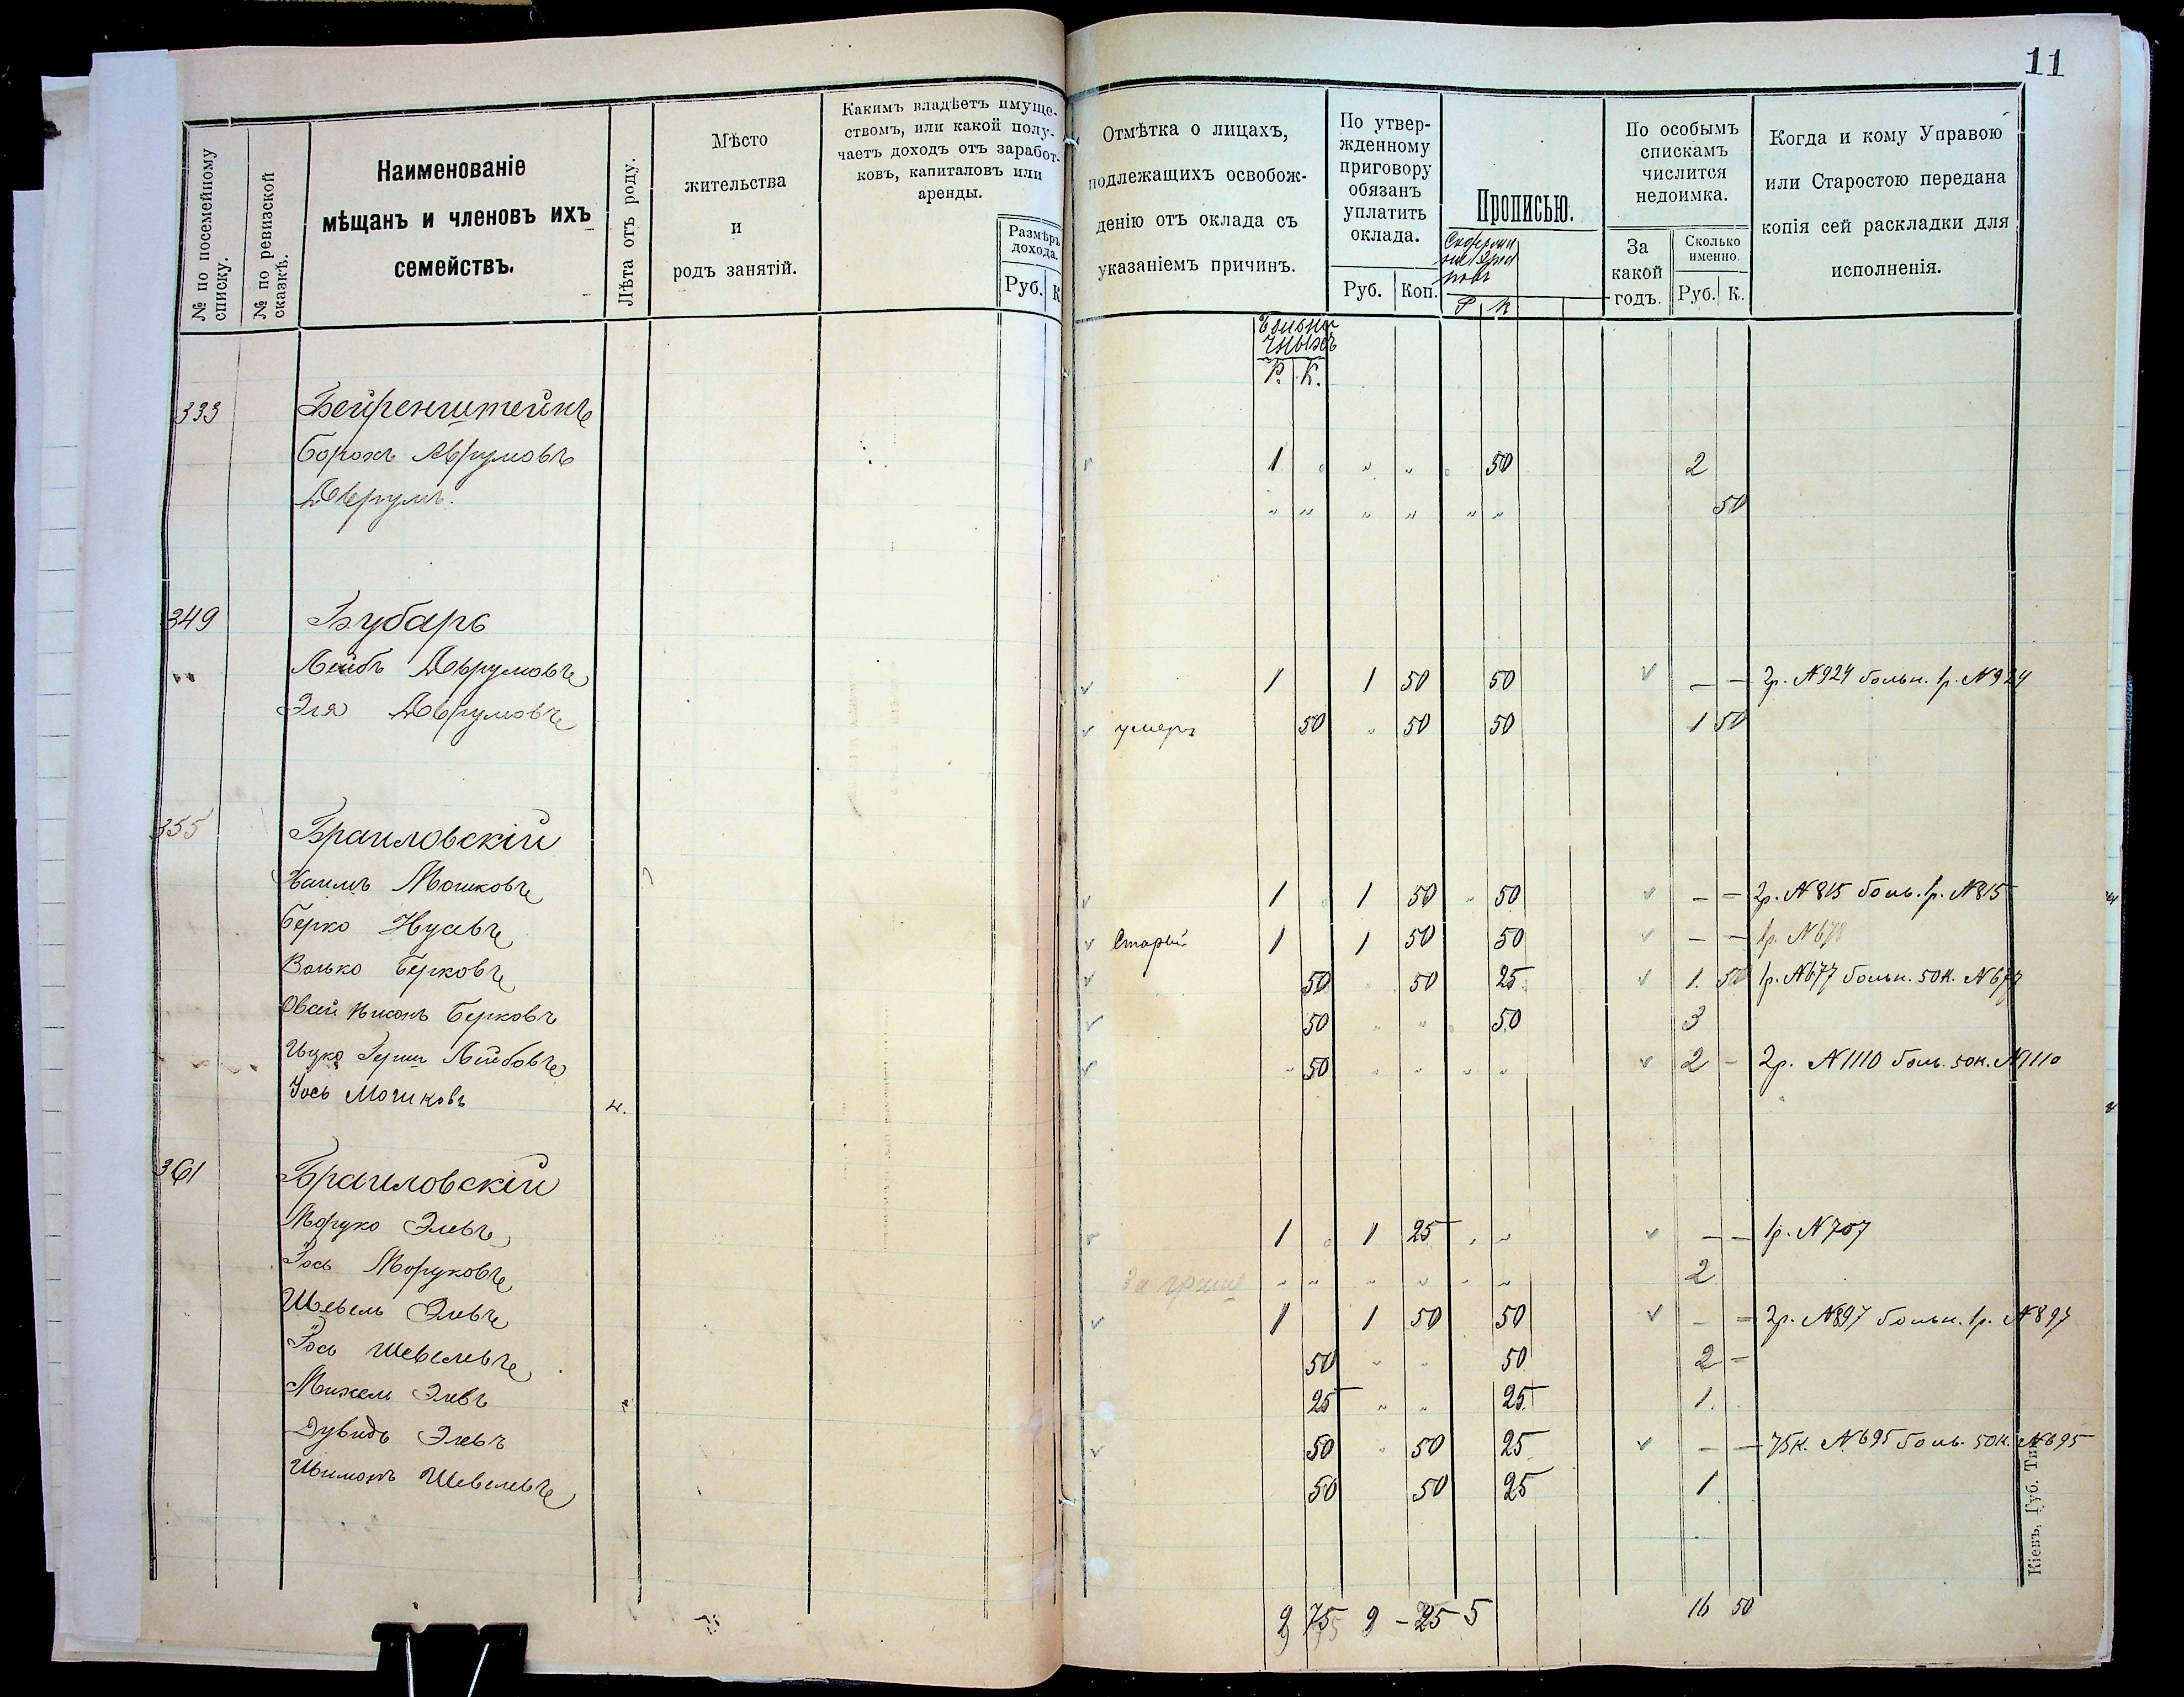 11
№ по посемейному списку.
№ по ревизской сказкѣ.
Наименованіе
мѣщанъ и членовъ ихъ
семействъ.
Лѣта отъ роду.
Мѣсто
жительства
и
родъ занятій.
Какимъ владѣетъ имуще-
ствомъ, или какой полу-
чаетъ доходъ отъ заработ-
ковъ, капиталовъ или
аренды.
Размѣръ
дохода.
Руб. К
Отмѣтка о лицахъ,
подлежащихъ освобож-
денію отъ оклада съ
указаніемъ причинъ.
По утвер-
жденному
приговору
обязанъ
уплатить
оклада.
Руб. Коп.
Прописью.
Р К
По особымъ
спискамъ
числится
недоимка.
За
какой
годъ.
Сколько
именно.
Руб. К.
Когда и кому Управою
или Старостою передана
копія сей раскладки для
исполненія.
Р. К.
333 Бейренштейнъ
Борохъ Аврумовъ 1 „ „ 50 2
Аврумъ. „ „ „ „ „ „ 50
349 Бубаръ
Лейбъ Аврумовъ 1 1 50 50 — — 2р. №924 больн. 1р. №924
Эля Аврумовъ умеръ 50 „ 50 50 1 50
355 Браиловскій
Хаимъ Мошковъ 1 1 50 „ 50 — — 2р. №815 боль. 1р. №815
Берко Нуавъ Старый 1 1 50 50 — — 1р. №678
Волько Берковъ 50 50 25 1. 50 1р. №677 больн. 50к. №677
Овсей Берковъ 50 „ „ 50 3
Ицко Герш Лейбовъ „ 50 „ „ „ „ 2 — 2р. №1110 боль. 50к. №1110
Іось Мошковъ 4.
361 Браиловскій
Моруко Элевъ 1 1 25 „ „ — — 1р. №707
Іось Моруковъ За грани „ „ „ „ „ „ 2
Шевель Элевъ 1 1 50 50 — = 2р. №897 больн. 1р. №897
Іось Шевелевъ 50 „ „ 50 2 =
Михель Элевъ 25 „ „ 25. 1.
Дувидъ Элевъ 50 „ 50 25 — — 75к. №695 боль. 50к. №695
Шимонъ Шевелевъ 50 50 25 1
9 75 9 — 25 5 16 50
Кіевъ, Губ. Тип.